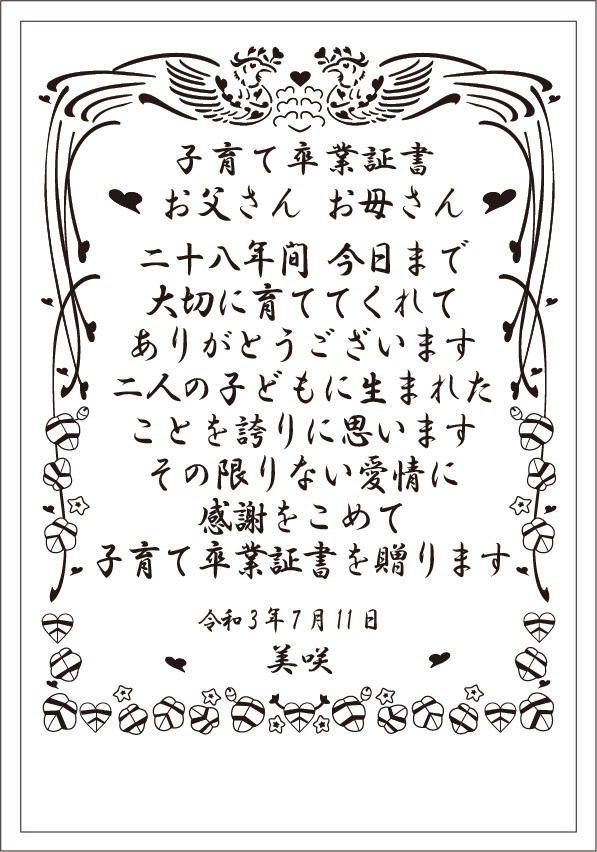 子育て卒業証書
お父さん お母さん
二十八年間 今日まで
大切に育ててくれて
ありがとうございます
二人の子どもに生まれた
ことを誇りに思います
その限りない愛情に
感謝をこめて
子育て卒業証書を贈ります
令和3年7月11日
美咲